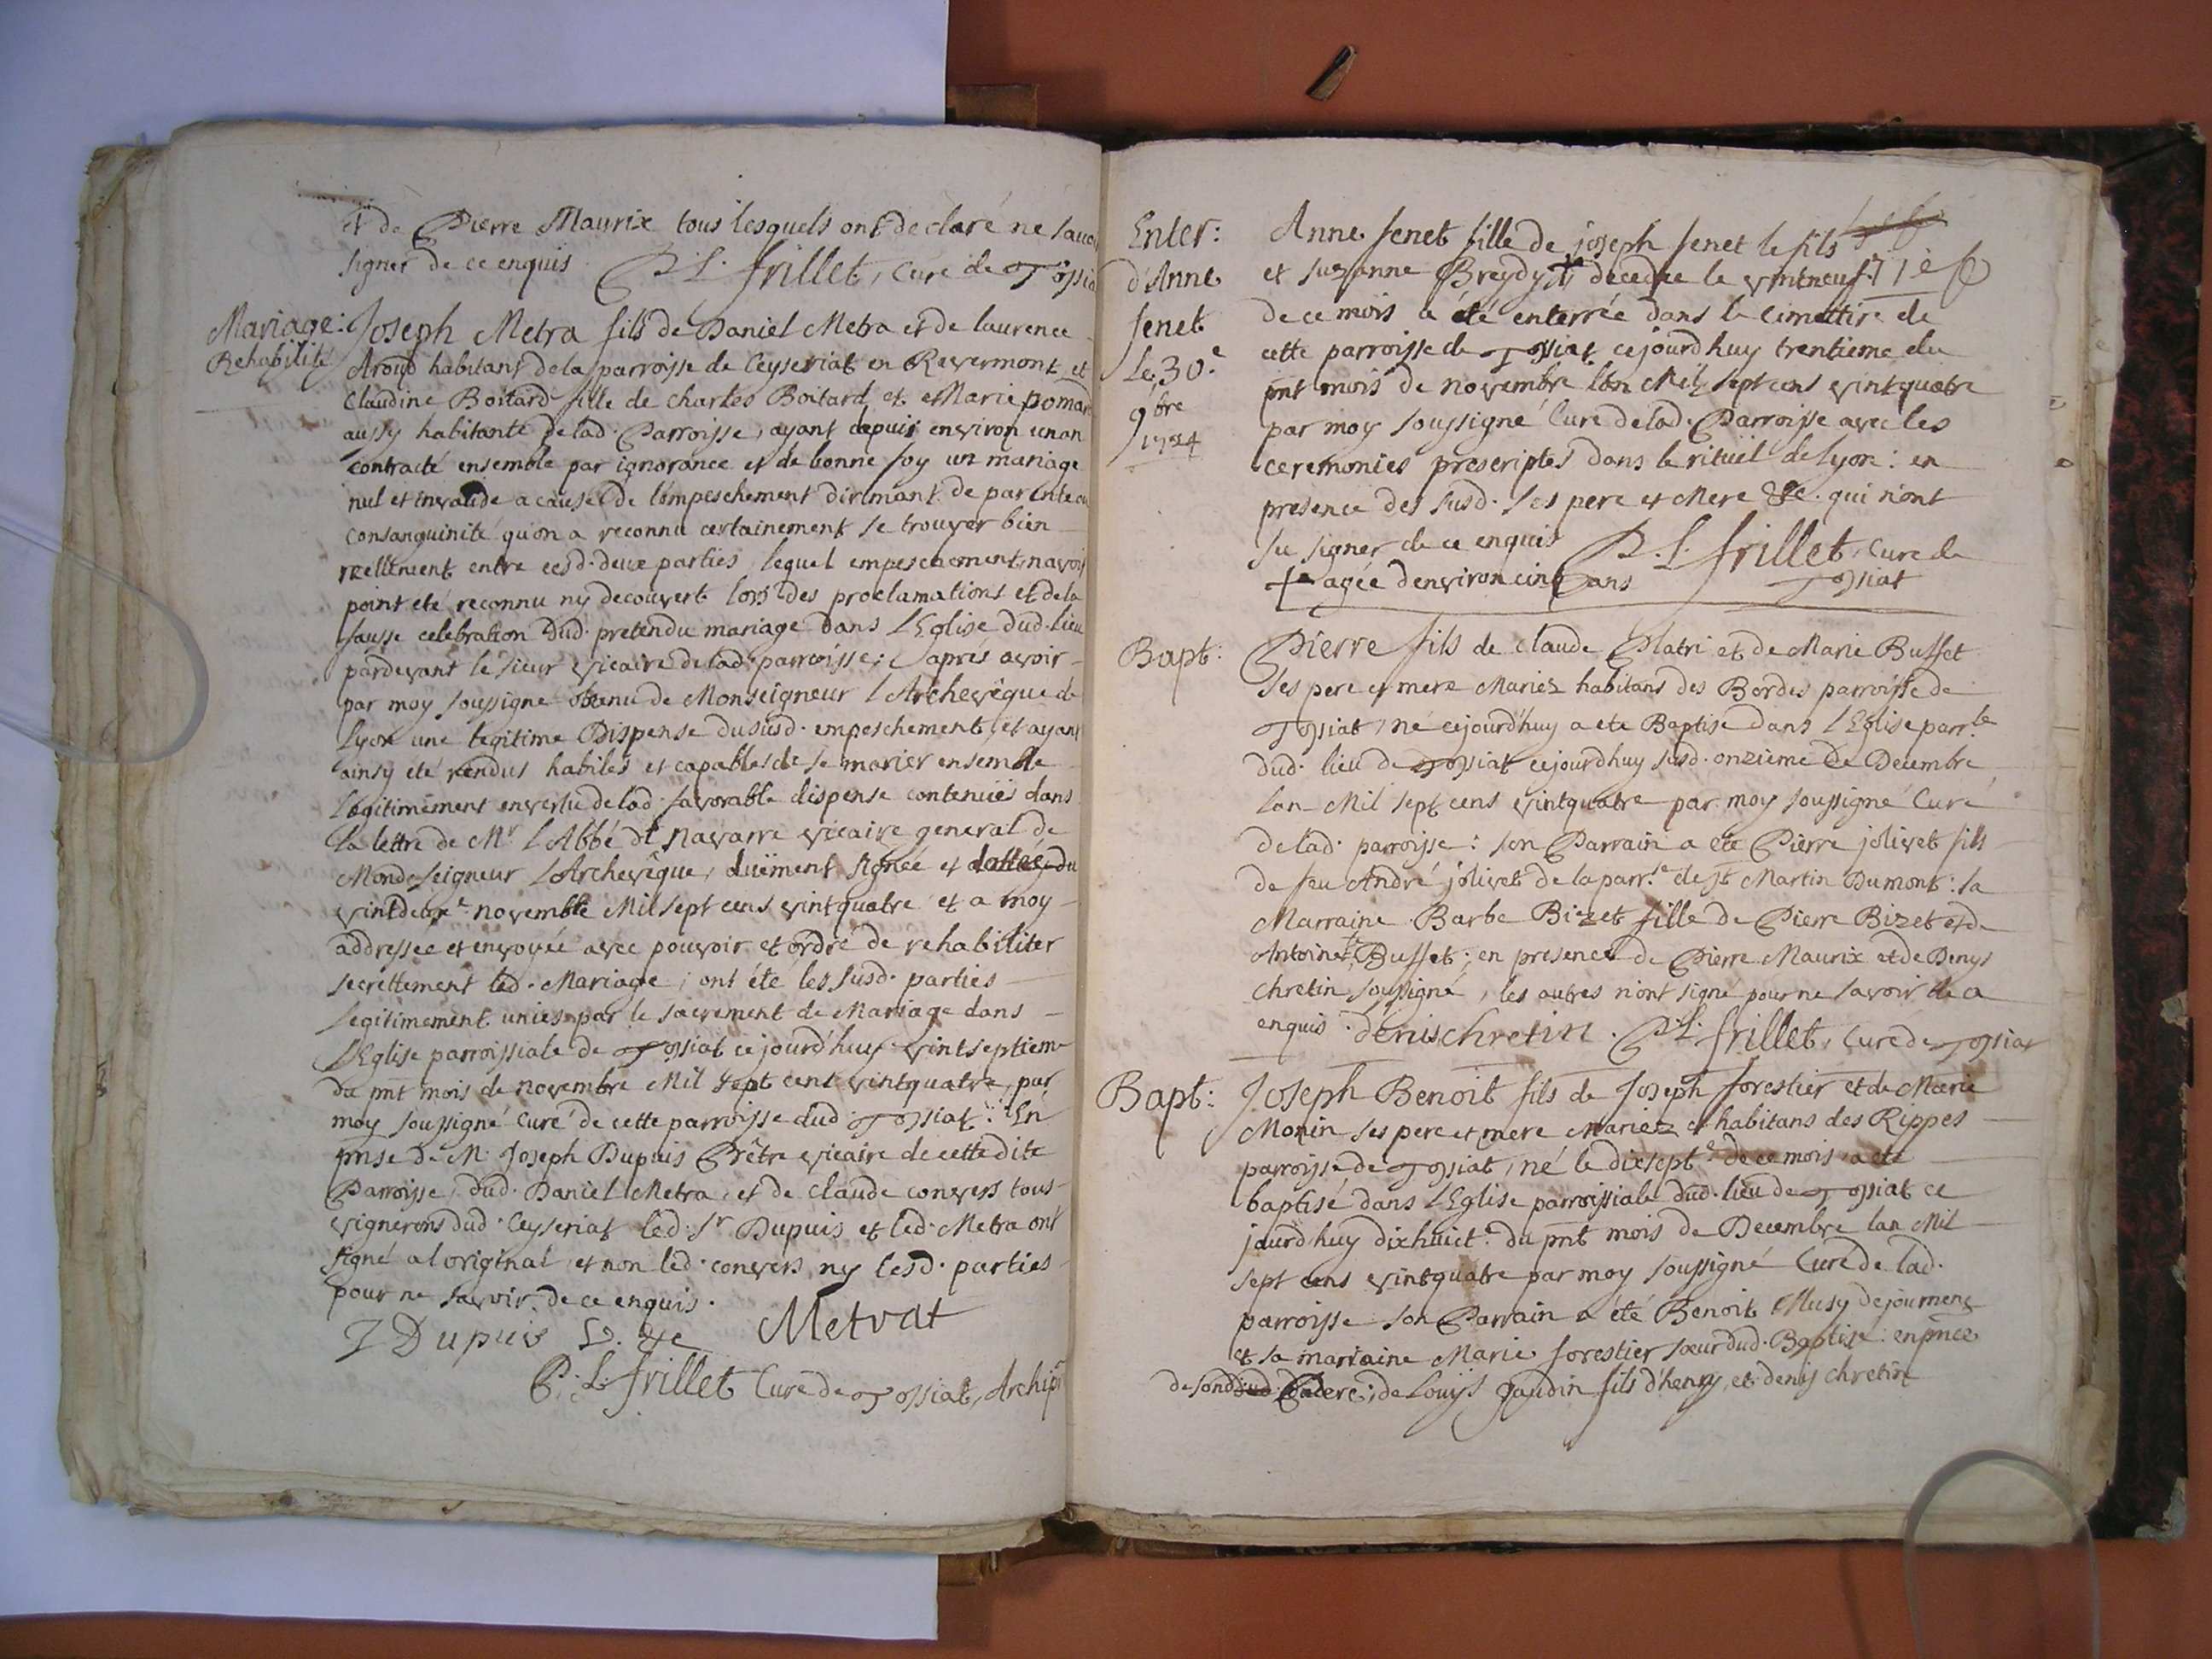 et de Pierre Maurix tous lesquels ont declaré ne savoi
signer de ce enquis P. L. frillet, Curé de Tossia
Mariage:
Rehabilité
Joseph Metra fils de Daniel Metra et de laurence
Aroud habitant de la parroisse de Ceyseriat en Revermont et
Claudine Boitard fille de charles Boitard et Marie pomar
aussy habitante de lad. Parroisse, ayant depuis environ un an
contracté ensemble par ignorance et de bonne foy un mariage
nul et invalide a cause de l'empeschement dirimant de parenté ou
consanguinité qu'on a reconnu certainement se trouver bien
reellement entre cesd. deux parties, lequel empeschement navoit
point eté reconnu ny decouvert lors des proclamations et de la
fausse celebration dud. pretendu mariage dans l'Eglise dud. lieu
pardevant le sieur vicaire de lad. parroisse; apres avoir
par moy soussigné obtenu de Monseigneur l'Archevêque de
Lyon une legitime Dispense du susd. empeschement, et ayant
ainsy été rendus habiles et capables de se marier ensemble
légitimement en vertu de lad. favorable dispense contenüe dans
la lettre de Mr. l'Abbé de Navarre vicaire general de
Mondseigneur l'Archevêque, düement signée et dattée du
vintdeuxe. novembre Mil sept cens vintquatre et a moy
addressée et envoyée avec pouvoir et ordre de rehabiliter
secrettement led. Mariage; ont été les susd. parties
legitimement unies par le sacrement de Mariage dans
l'Eglise parroissiale de Tossiat cejourd'huy vintseptiem
du pnt mois de novembre Mil sept cent vintquatre, par
moy soussigné Curé de cette parroisse dud. Tossiat: En
pnse de M. Joseph Dupuis Prêtre vicaire de cette dite
Parroisse, dud. Daniel Metra, et de claude convers tous
vignerons dud. Ceyseriat led. Sr Dupuis et led. Metra ont
signé a l'original et non led. convers ny lesd. parties
pour ne savoir de ce enquis.
J Dupuis Metrat
P. L. frillet Curé de Tossiat, Archip
Enter:
d'Anne
fenet
Le 30.e
9bre
1724
Anne fenet fille de joseph fenet le fils
et suzanne Breydy + decedée le vintneuf
de ce mois a été enterrée dans le cimettire de
cette parroisse de Tossiat cejourd'huy trentieme du
pnt mois de novembre l'an Mil sept cens vintquatre
par moy soussigné Curé de lad. Parroisse avec les
ceremonies prescriptes dans le rituël de Lyon: en
presence des susd. ses pere et Mere &c. qui n'ont
su signer de ce enquis P. L. frillet, Curé de
+ agée d'environ cinq ans Tossiat
Bapt:
Pierre fils de claude Platri et de Marie Buffet
ses pere et mere Mariez habitans des Bordes parroisse de
Tossiat, né cejourd'huy a été Baptisé dans l'Eglise parr.le
dud. lieu de Tossiat cejourd'huy susd. onzieme de Decembre
lan Mil sept cens vintquatre par moy soussigné Curé
de lad. parroisse: son Parrain a été Pierre jolivet fils
de feu André jolivet de la parr.e de st Martin Dumont: sa
Marraine Barbe Bizet fille de Pierre Bizet et d
Antoinette Buffet: en presence de Pierre Maurix et de Denys
chretin soussigné, les autres n'ont signé pour ne savoir de ce
enquis. denischretin. P. L. frillet, Curé de Tossiat
Bapt:
Joseph Benoit fils de Joseph forestier et de Marie
Monin ses pere et mere Mariez et habitans des Rippes
parroisse de Tossiat, né le dixsept.e de ce mois a été
baptisé dans l'Eglise parroissiale dud. lieu de Tossiat ce
jourd'huy dixhuict.e du pnt mois de Decembre lan Mil
sept cens vintquatre par moy soussigné Curé de lad.
parroisse son Parrain a été Benoit Musy de journens
et sa marraine Marie forestier sœur dud. Baptisé: en pnce
de sond. Pere; de Louis Gaudin fils d'henry, et denis chretin